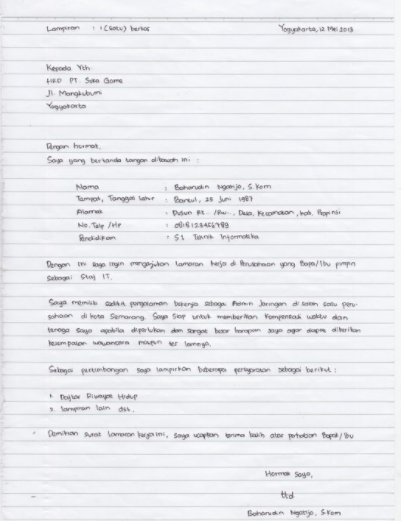 Lampiran : 1 (Satu) berkas Yogyakarta, 12 Mei 2013
Kepada Yth
HRD PT. Sura Game
Jl. Mangkubumi
Yogyakarta
Dengan hormat,
Saya yang bertanda tangan dibawah ini :
Nama : Baharudin Ngatijo, S.Kom
Tempat, Tanggal lahir : Bantul, 25 Juni 1987
Alamat : Dusun Rt.. /Rw.., Desa, Kecamatan, Kab, Propinsi
No. Telp /Hp : 0818123456789
Pendidikan : S1 Teknik Informatika
Dengan ini saya ingin mengajukan lamaran kerja di Perusahaan yang Bapak/Ibu pimpin
sebagai Staf IT.
Saya memiliki sedikit pengalaman bekerja sebagai Admin Jaringan di salah satu peru-
sahaan di kota Semarang. Saya siap untuk memberikan kompensasi waktu dan
tenaga saya apabila diperlukan dan sangat besar harapan saya agar dapat diberikan
kesempatan wawancara maupun tes lainnya.
Sebagai pertimbangan saya lampirkan beberapa persyaratan sebagai berikut :
1. Daftar Riwayat Hidup
2. lampiran lain dst.
Demikian surat lamaran kerja ini, saya ucapkan terima kasih atas perhatian Bapak/Ibu
Hormat Saya,
ttd
Baharudin Ngatijo, S.Kom